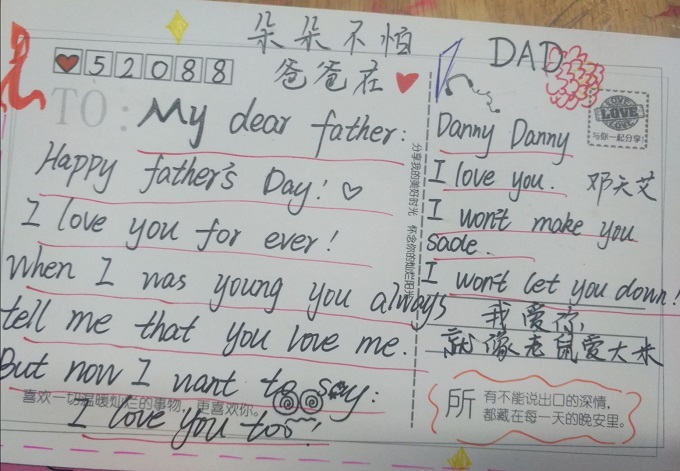 朵朵不怕
爸爸在
DAD
52088
TO:
My dear father:
Happy father's Day!
I love you for ever!
When I was young you always
tell me that you love me.
But now I want to say:
I love you too!
喜欢一切温暖灿烂的事物，更喜欢你。
分享我的美好时光 怀念你的灿烂阳光
LOVE
与你一起分享!
Danny Danny
I love you.
邓天艾
I won't make you
sade.
I won't let you down!
我爱你
就像老鼠爱大米
所有不能说出口的深情,
都藏在每一天的晚安里。